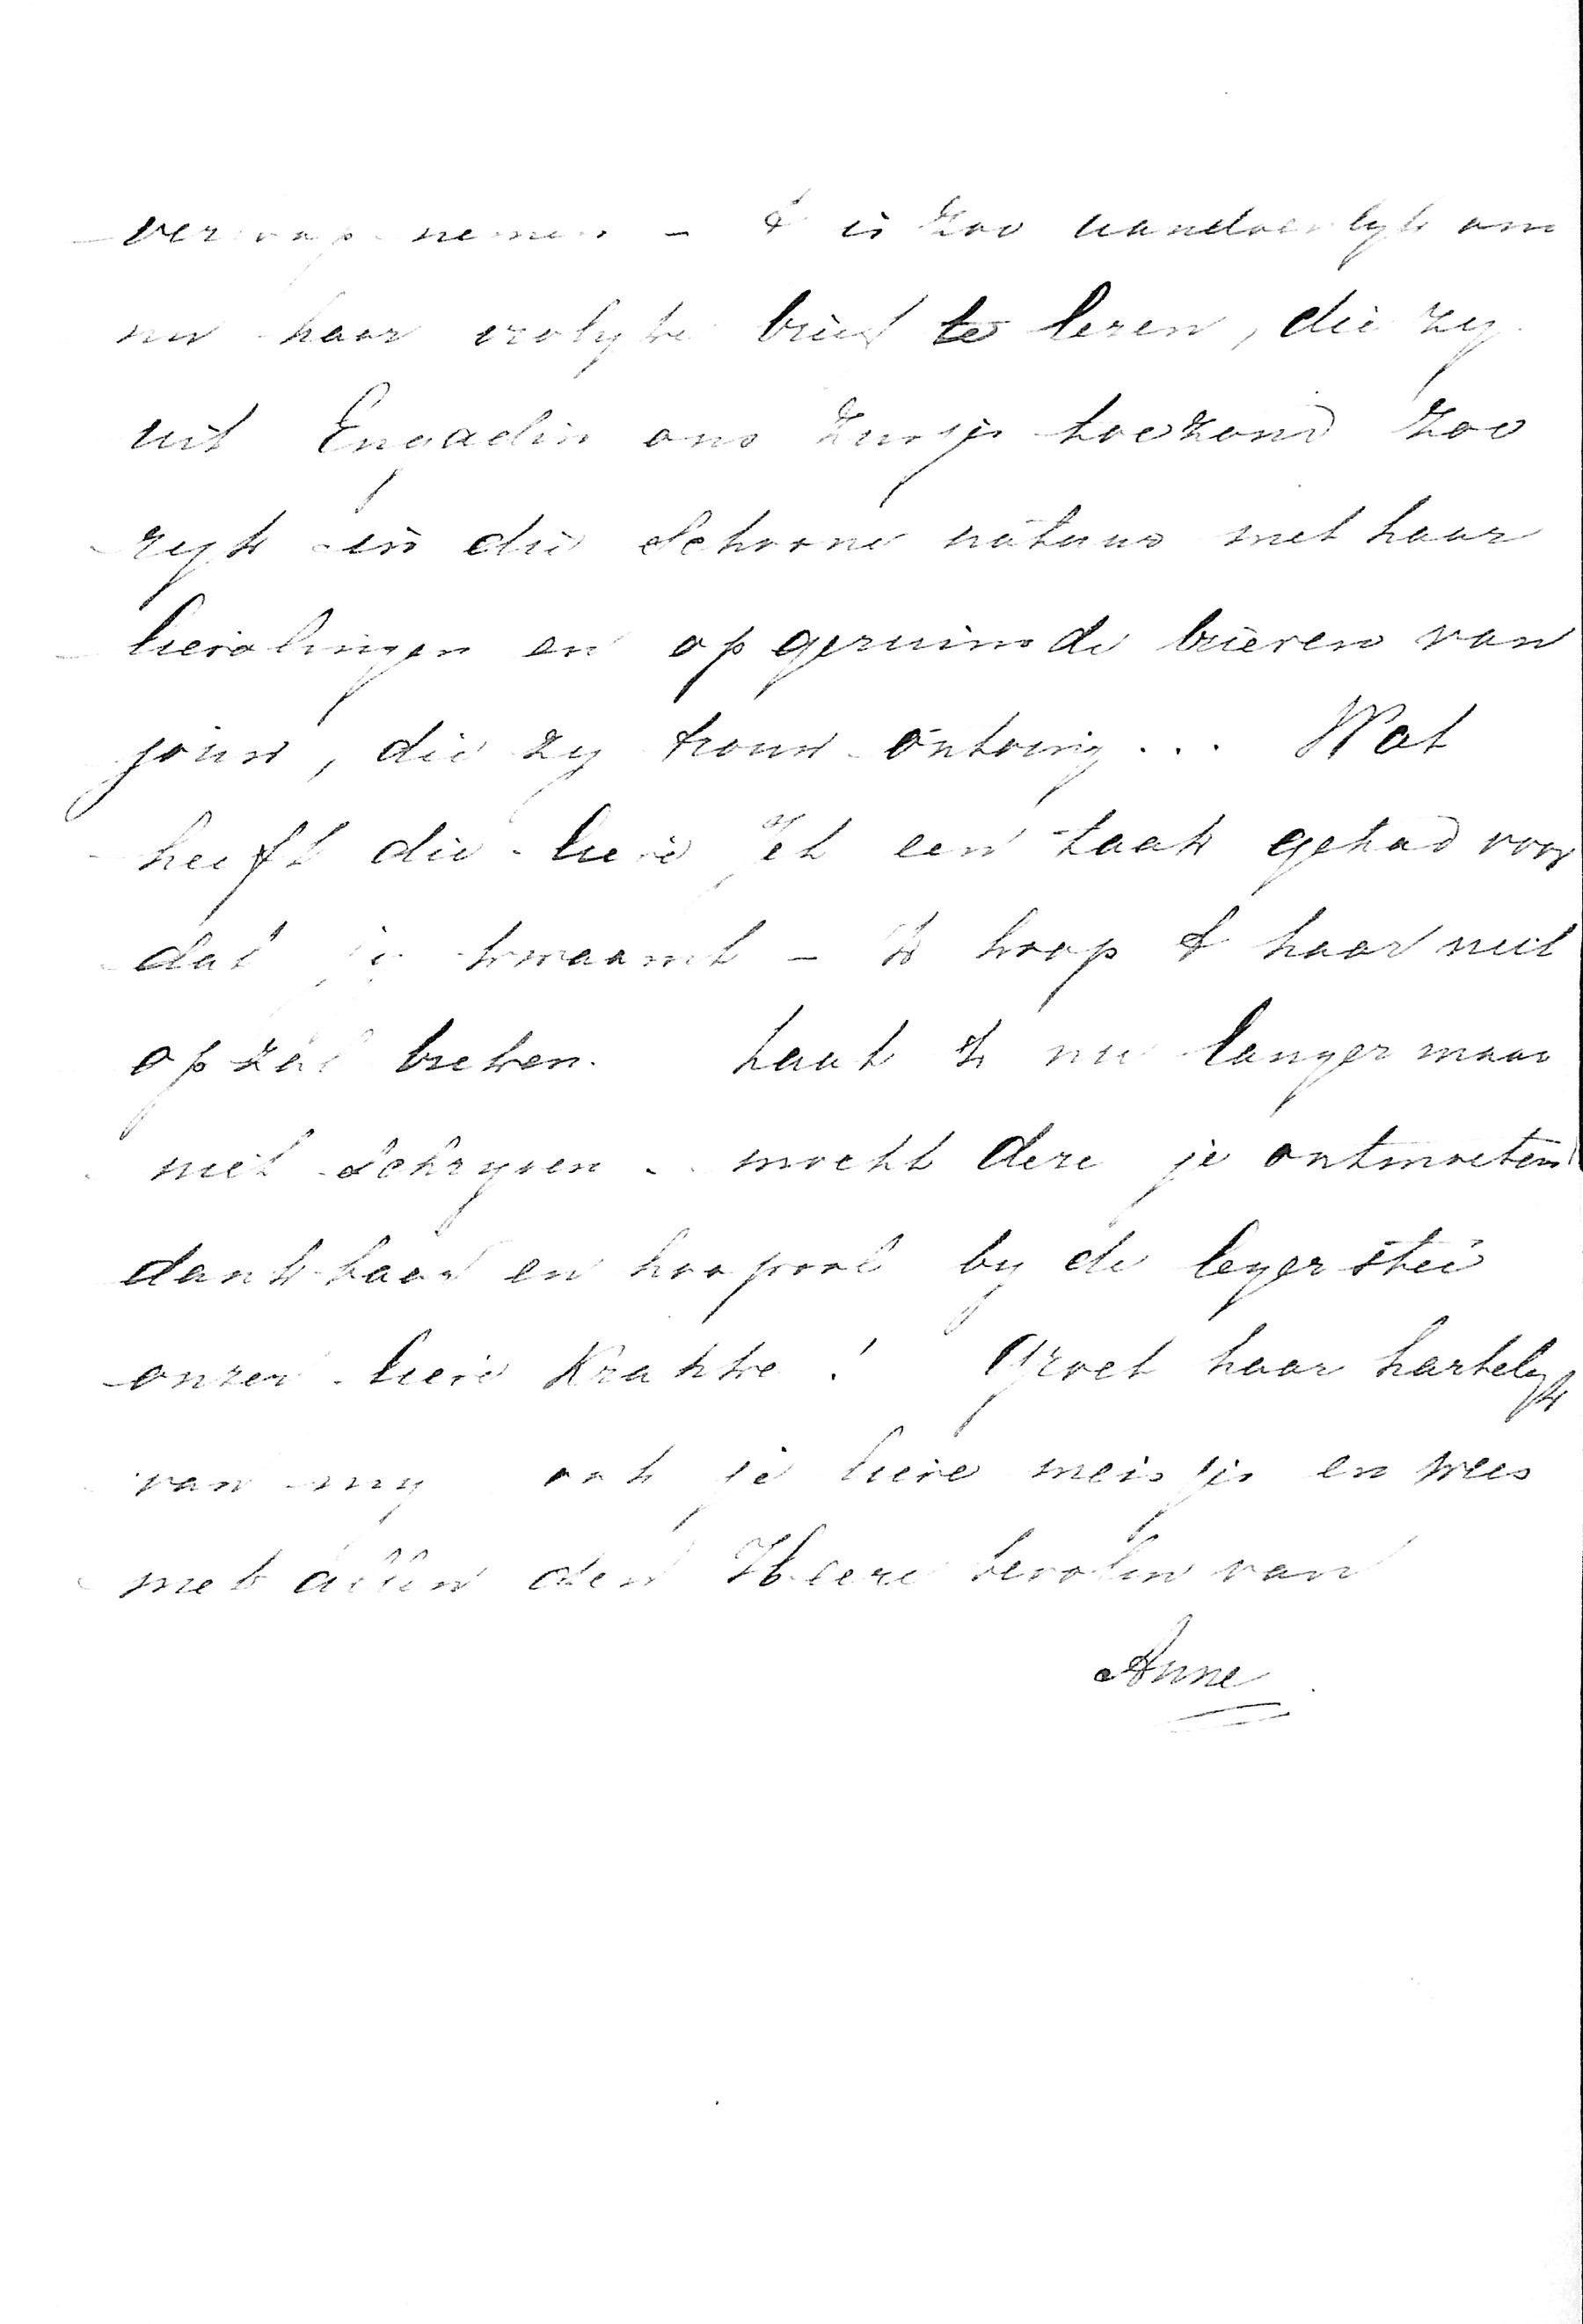 nemen - 't is zoo aandoenlyk om
nu haar vrolyke brief te lezen, die zy
uit Engadin ons zusje toezond zoo
ryk in die schoone natuur met haar
lievelingen en opgeruimde brieven van
jouw, die zy trouw ontving... Wat
heeft die lieve Jet een taak gehad voor
dat je kwaamt - 'k hoop 't haar niet
op zal breken. Laat 'k nu langer maar
niet schryven - mocht deze je ontmoeten
dankbaar en hoopvol by de legerstee
onzer lieve Kranke! Groet haar hartelyk
van my ook je lieve meisjes en wees
met allen den Heere bevolen van
Anne